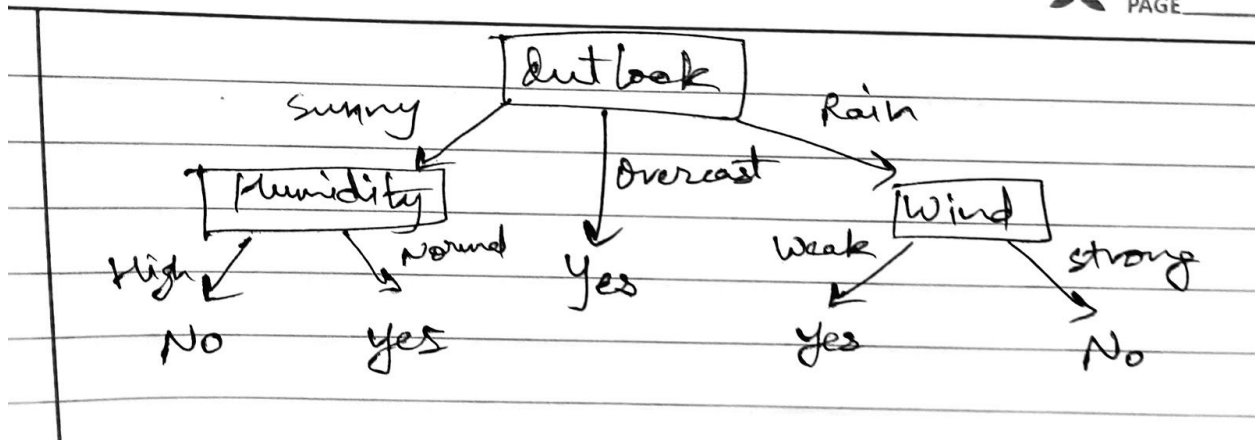 PAGE
Outlook
Sunny
Rain
Overcast
Humidity
Wind
High
Normal
Weak
strong
Yes
No
yes
yes
No